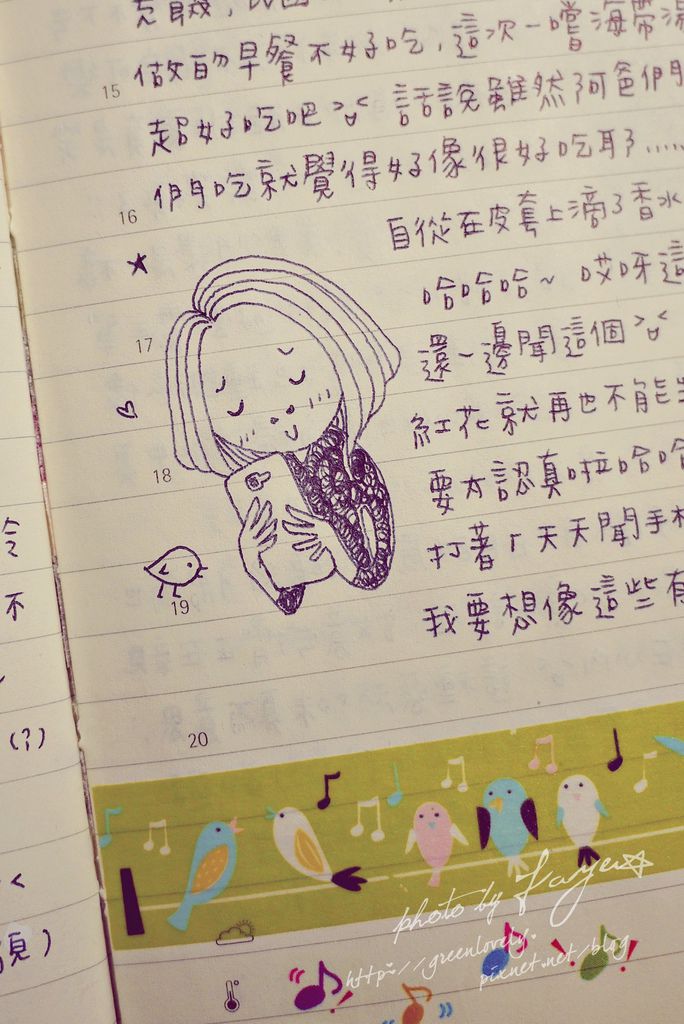 做的早餐不好吃，這次一嚐海帶湯
15
超好吃吧 >"< 話說雖然阿爸們
們吃就覺得好像很好吃耶……
16
自從在皮套上滴了香水
哈哈哈~ 哎呀這
17
還一邊聞這個 >"<
紅花就再也不能
18
要太認真啦哈哈
打著「天天聞手
19
我要想像這些有
令
不
(?)
<
)
20
photo by Faye
http://greenlovely.
pixnet.net/blog